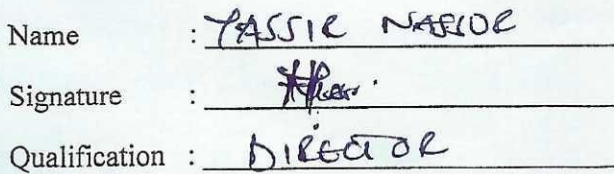 Name : YASSIR NASSOR
Signature :
Qualification : DIRECTOR